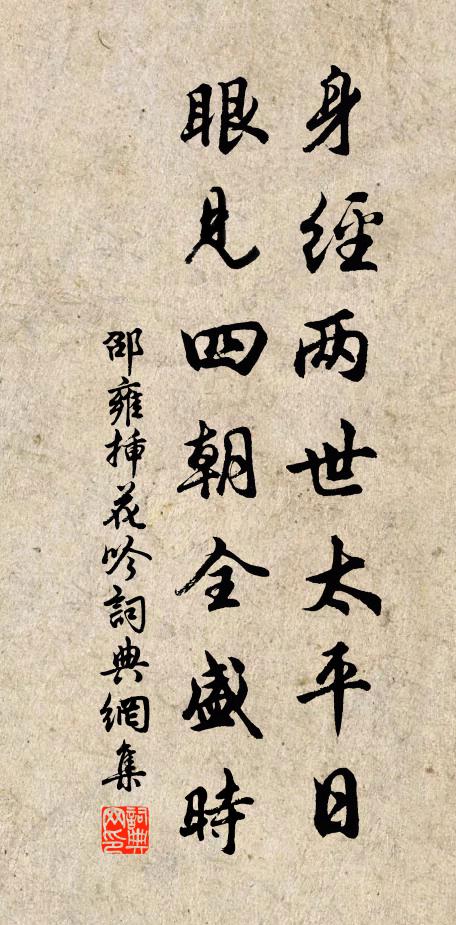 身經两世太平日
眼見四朝全盛時
邵雍插花吟詞典網集
詞典網印